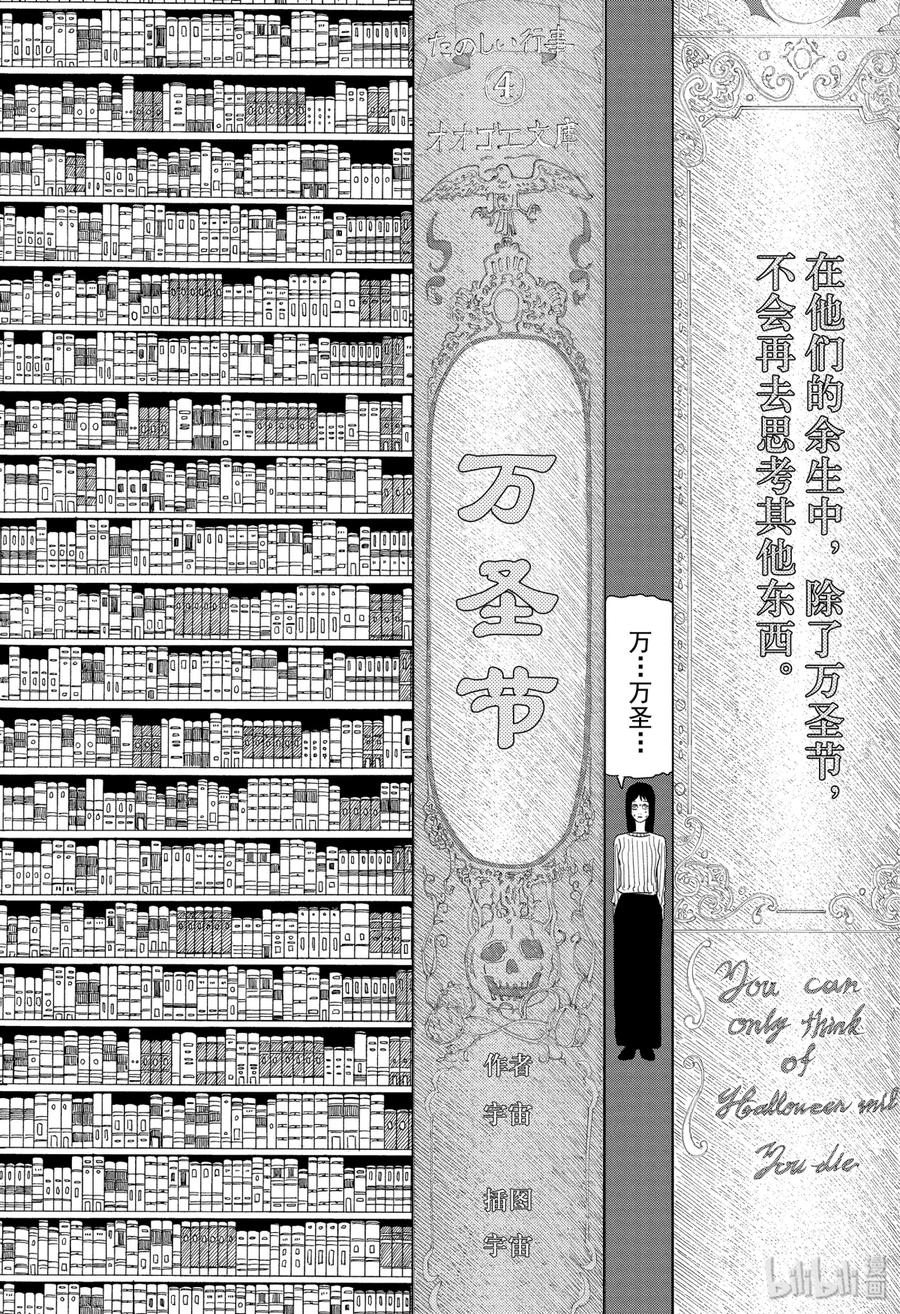 在他们的余生中，除了万圣节，
不会再去思考其他东西。
You can
only think
of
Halloween until
You die
万…万圣…
たのしい行事
4
オオゴエ文庫
万圣节
作者
宇宙
插图
宇宙
bilibili漫画